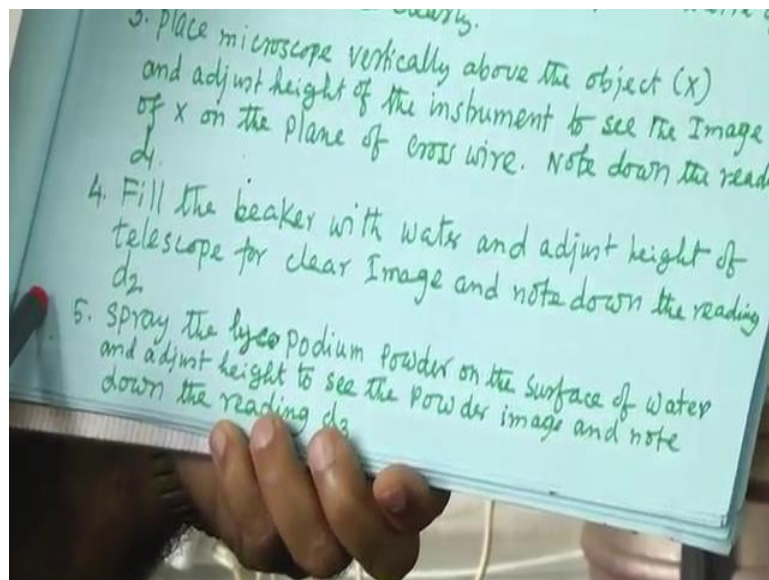 clearly.
3. Place microscope vertically above the object (x)
and adjust height of the instrument to see the Image
of x on the plane of cross wire. Note down the read
d1.
4. Fill the beaker with water and adjust height of
telescope for clear Image and note down the reading
d2
5. Spray the lycopodium Powder on the surface of water
and adjust height to see the Powder image and note
down the reading d3